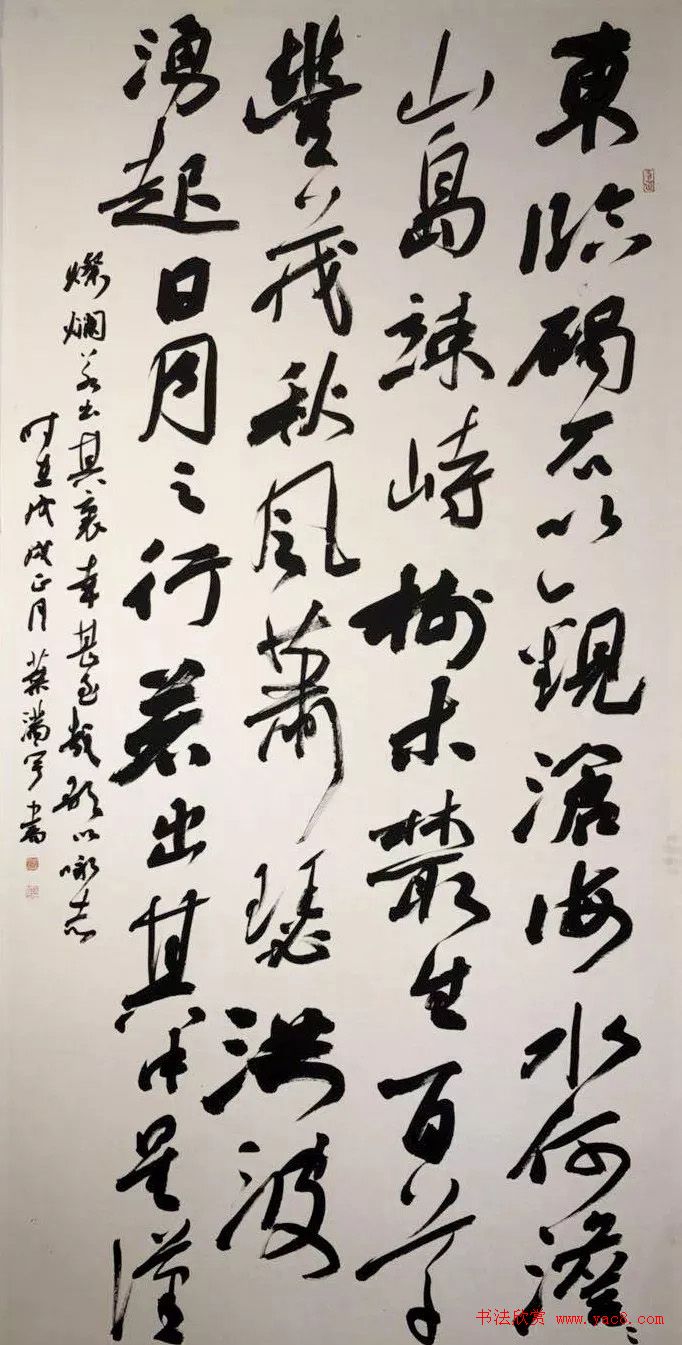 東臨碣石以觀滄海水何澹〻
山島竦峙樹木叢生百草
豐茂秋風蕭瑟洪波
湧起日月之行若出其中星漢
燦爛若出其裏幸甚至哉歌以咏志
时在戊戌正月 書
书法欣赏 www.yac8.com